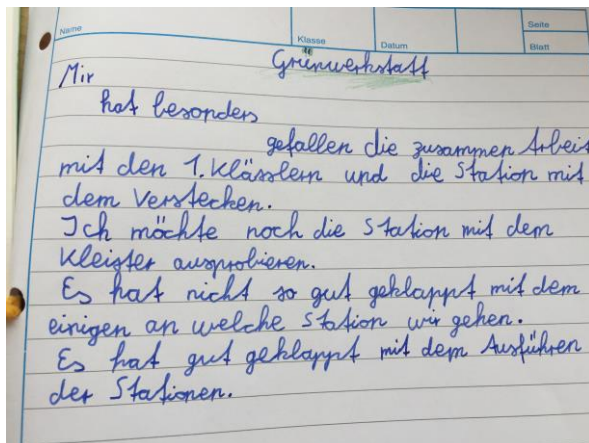 Name
Klasse
Datum
Seite
Blatt
Grünwerkstatt
Mir
hat besonders
gefallen die zusammen Arbeit
mit den 1. Klässlern und die Station mit
dem Verstecken.
Ich möchte noch die Station mit dem
Kleister ausprobieren.
Es hat nicht so gut geklappt mit dem
einigen an welche Station wir gehen.
Es hat gut geklappt mit dem Ausführen
der Stationen.